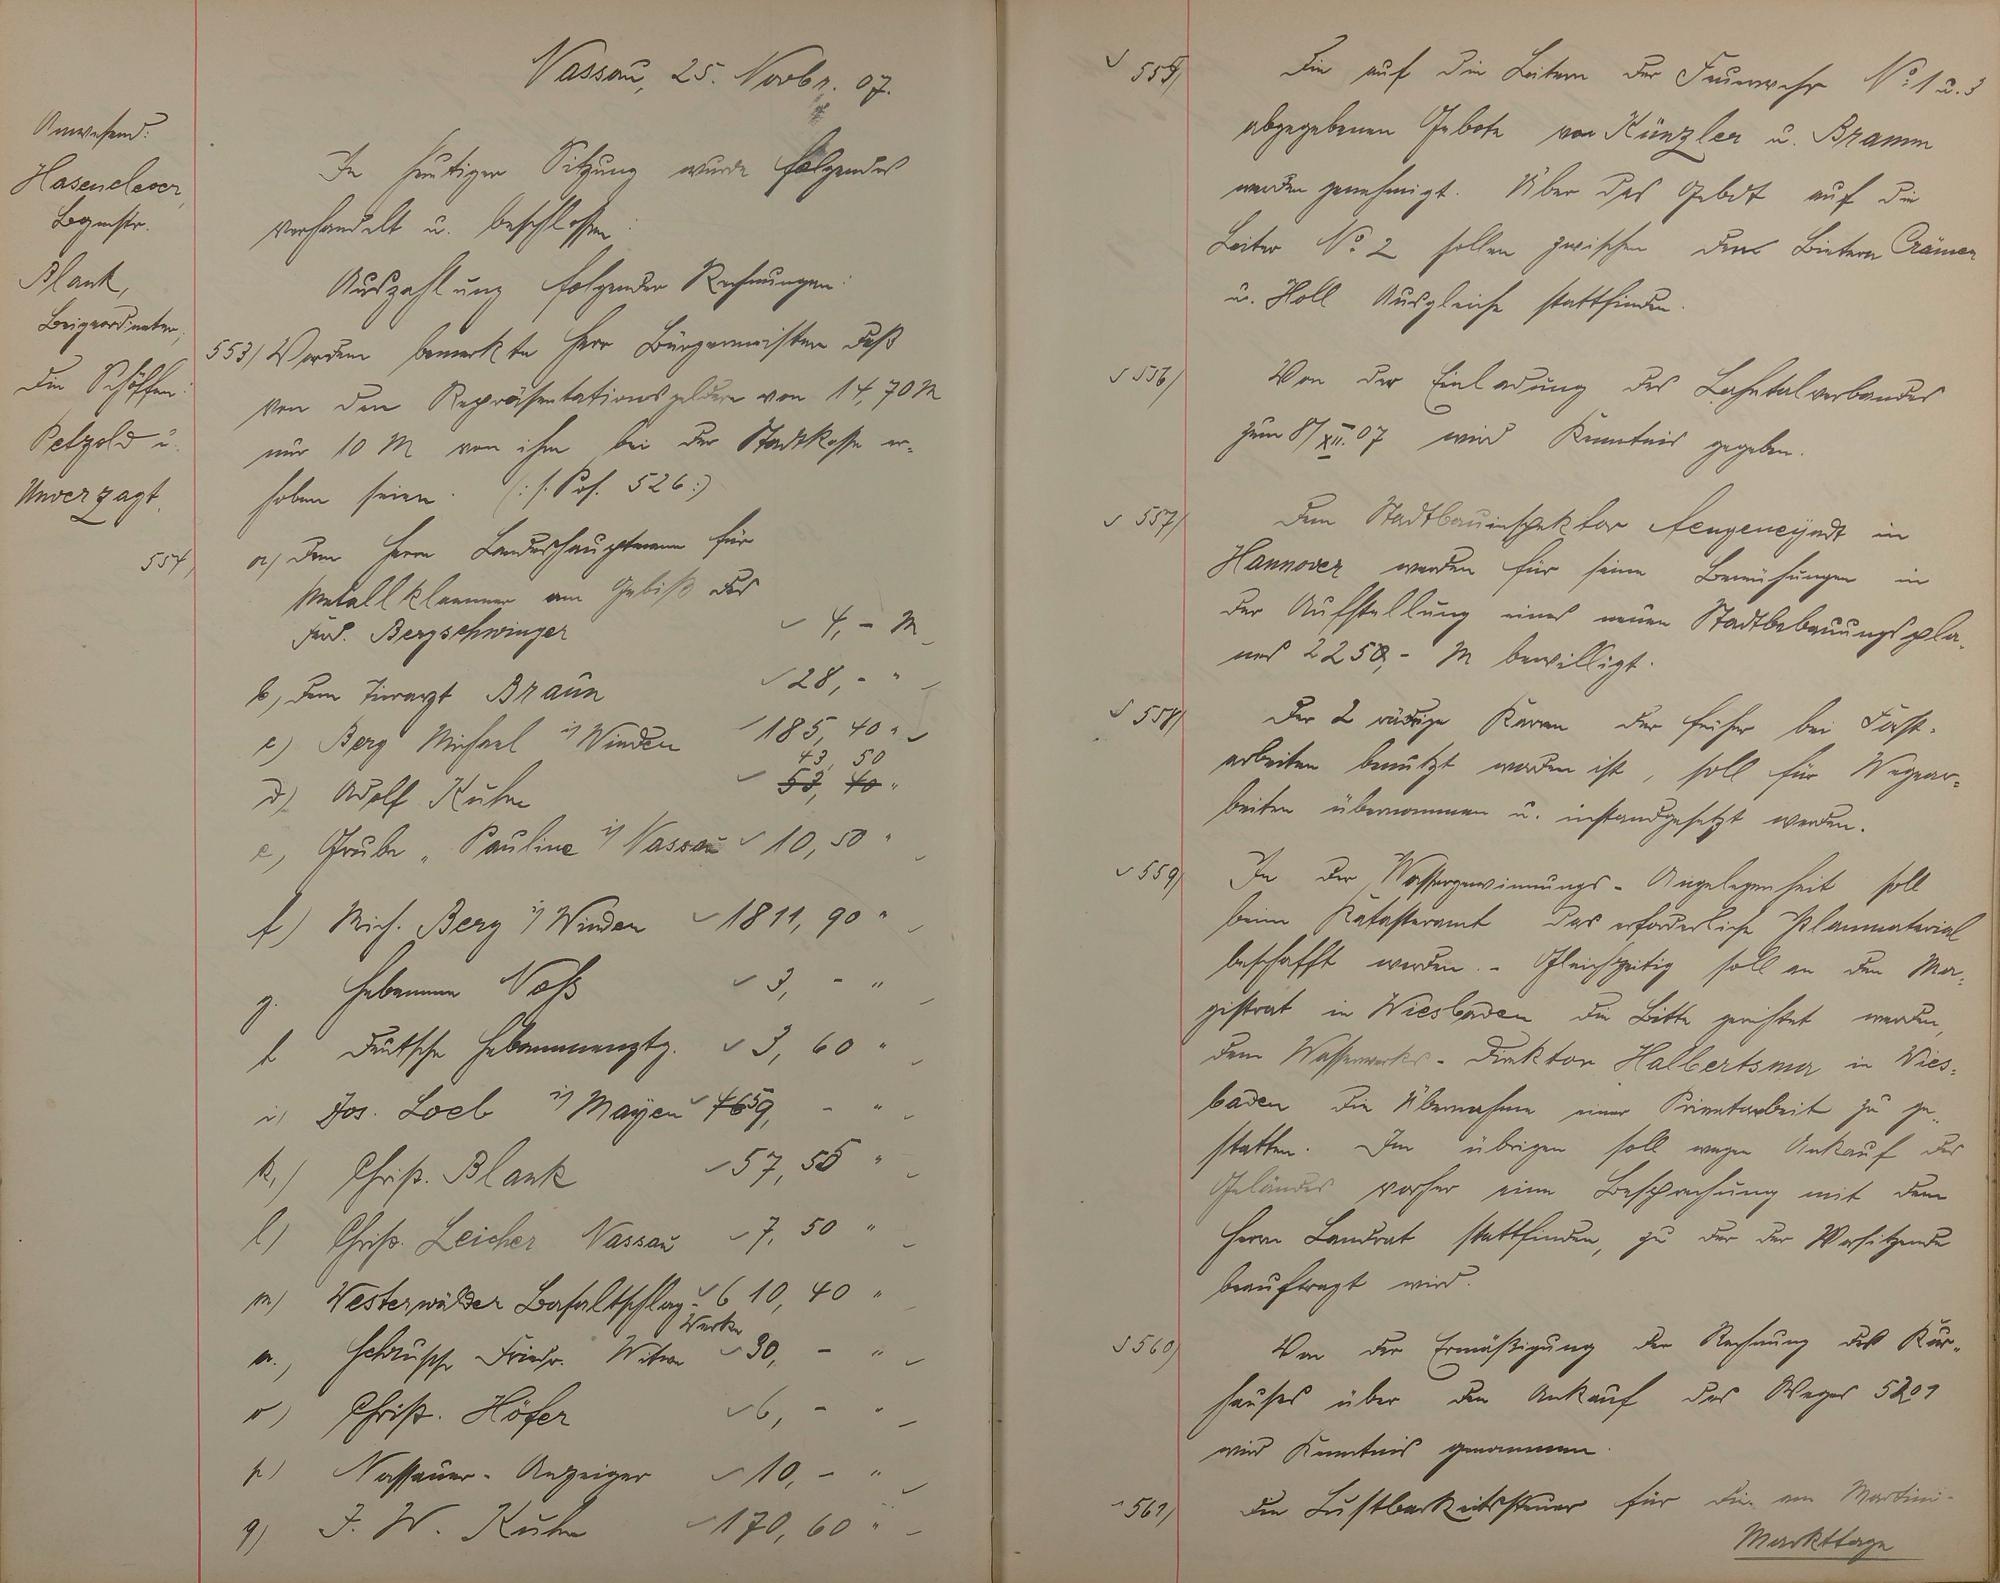 Nassau, 25. Novbr. 07.
Anwesend:
Hasenclever,
Bgmstr.
Blank,
Beigeordneter,
die Schöffen:
Petzold u.
Unverzagt.
In heutiger Sitzung wurde folgendes
verhandelt u. beschlossen:
Auszahlung folgender Rechnungen:
553/ Vordem bemerkte Herr Bürgermeister daß
von den Repräsentationsgeldern von 14,70 M
nur 10 M von ihm bei der Stadtkasse er-
hoben seien. (: s. Pos. 526 :)
554/ a/ Dem Herrn Landeshauptmann für
Metallklammer am Gebiß des
Ferd. Bergschwinger 4,- M
b, dem Tierarzt Braun 28,- "
c) Berg Michael i/ Winden 185,40 "
43,50
d) Adolf Kuhn 53,40 "
e, Grube „Pauline i/ Nassau 10,50 "
f) Mich. Berg i/ Winden 1811,90 "
g. Hebamme Noß 3,- "
h Deutsche Hebammenztg. 3,60 "
i) Jos. Loeb i/ Mayen 459,- "
k,) Christ. Blank 57,55 "
l) Christ. Leicher Nassau 7,50 "
m) Westerwälder Basaltschlag- 610,40 "
Werke
n., Friedr. Witwe 30,- "
o) Christ. Höfer 6,- "
p) Nassauer-Anzeiger 10,- "
q) J. W. Kuhn 170,60 "
555/ Die auf die Leitern der Feuerwehr No. 1 u. 3
abgegebenen Gebote von Künzler u. Bramm
werden genehmigt. Über das Gebot auf die
Leiter No. 2 sollen zwischen den Bietern Crämer
u. Holl Ausgleiche stattfinden.
556/ Von der Einladung des Lahntalverbandes
zum 8/XII. 07 wird Kenntnis gegeben.
557/ Dem Stadtbauinspektor in
Hannover werden für seine Bemühungen in
der Aufstellung eines neuen Stadtbebauungspla-
nes 2250,- M bewilligt.
558/ Der 2 rädrige Karren der früher bei Forst-
arbeiten benutzt worden ist, soll für Wegear-
beiten übernommen u. instandgesetzt werden.
559/ In der Wassergewinnungs-Angelegenheit soll
beim Katasteramt das erforderliche Planmaterial
beschafft werden. - Gleichzeitig soll an den Ma-
gistrat in Wiesbaden die Bitte gerichtet werden,
dem Wasserwerks-Direktor Halbertsma in Wies-
baden die Übernahme einer Privatarbeit zu ge-
statten. Im übrigen soll wegen Ankauf des
Geländes vorher eine Besprechung mit dem
Herrn Landrat stattfinden, zu der der Vorsitzende
beauftragt wird.
560/ Von der Ermäßigung der Rechnung des Kur-
hauses über den Ankauf des Weges 5201
wird Kenntnis genommen.
561/ Die Lustbarkeitssteuer für die am Martini-
Markttage